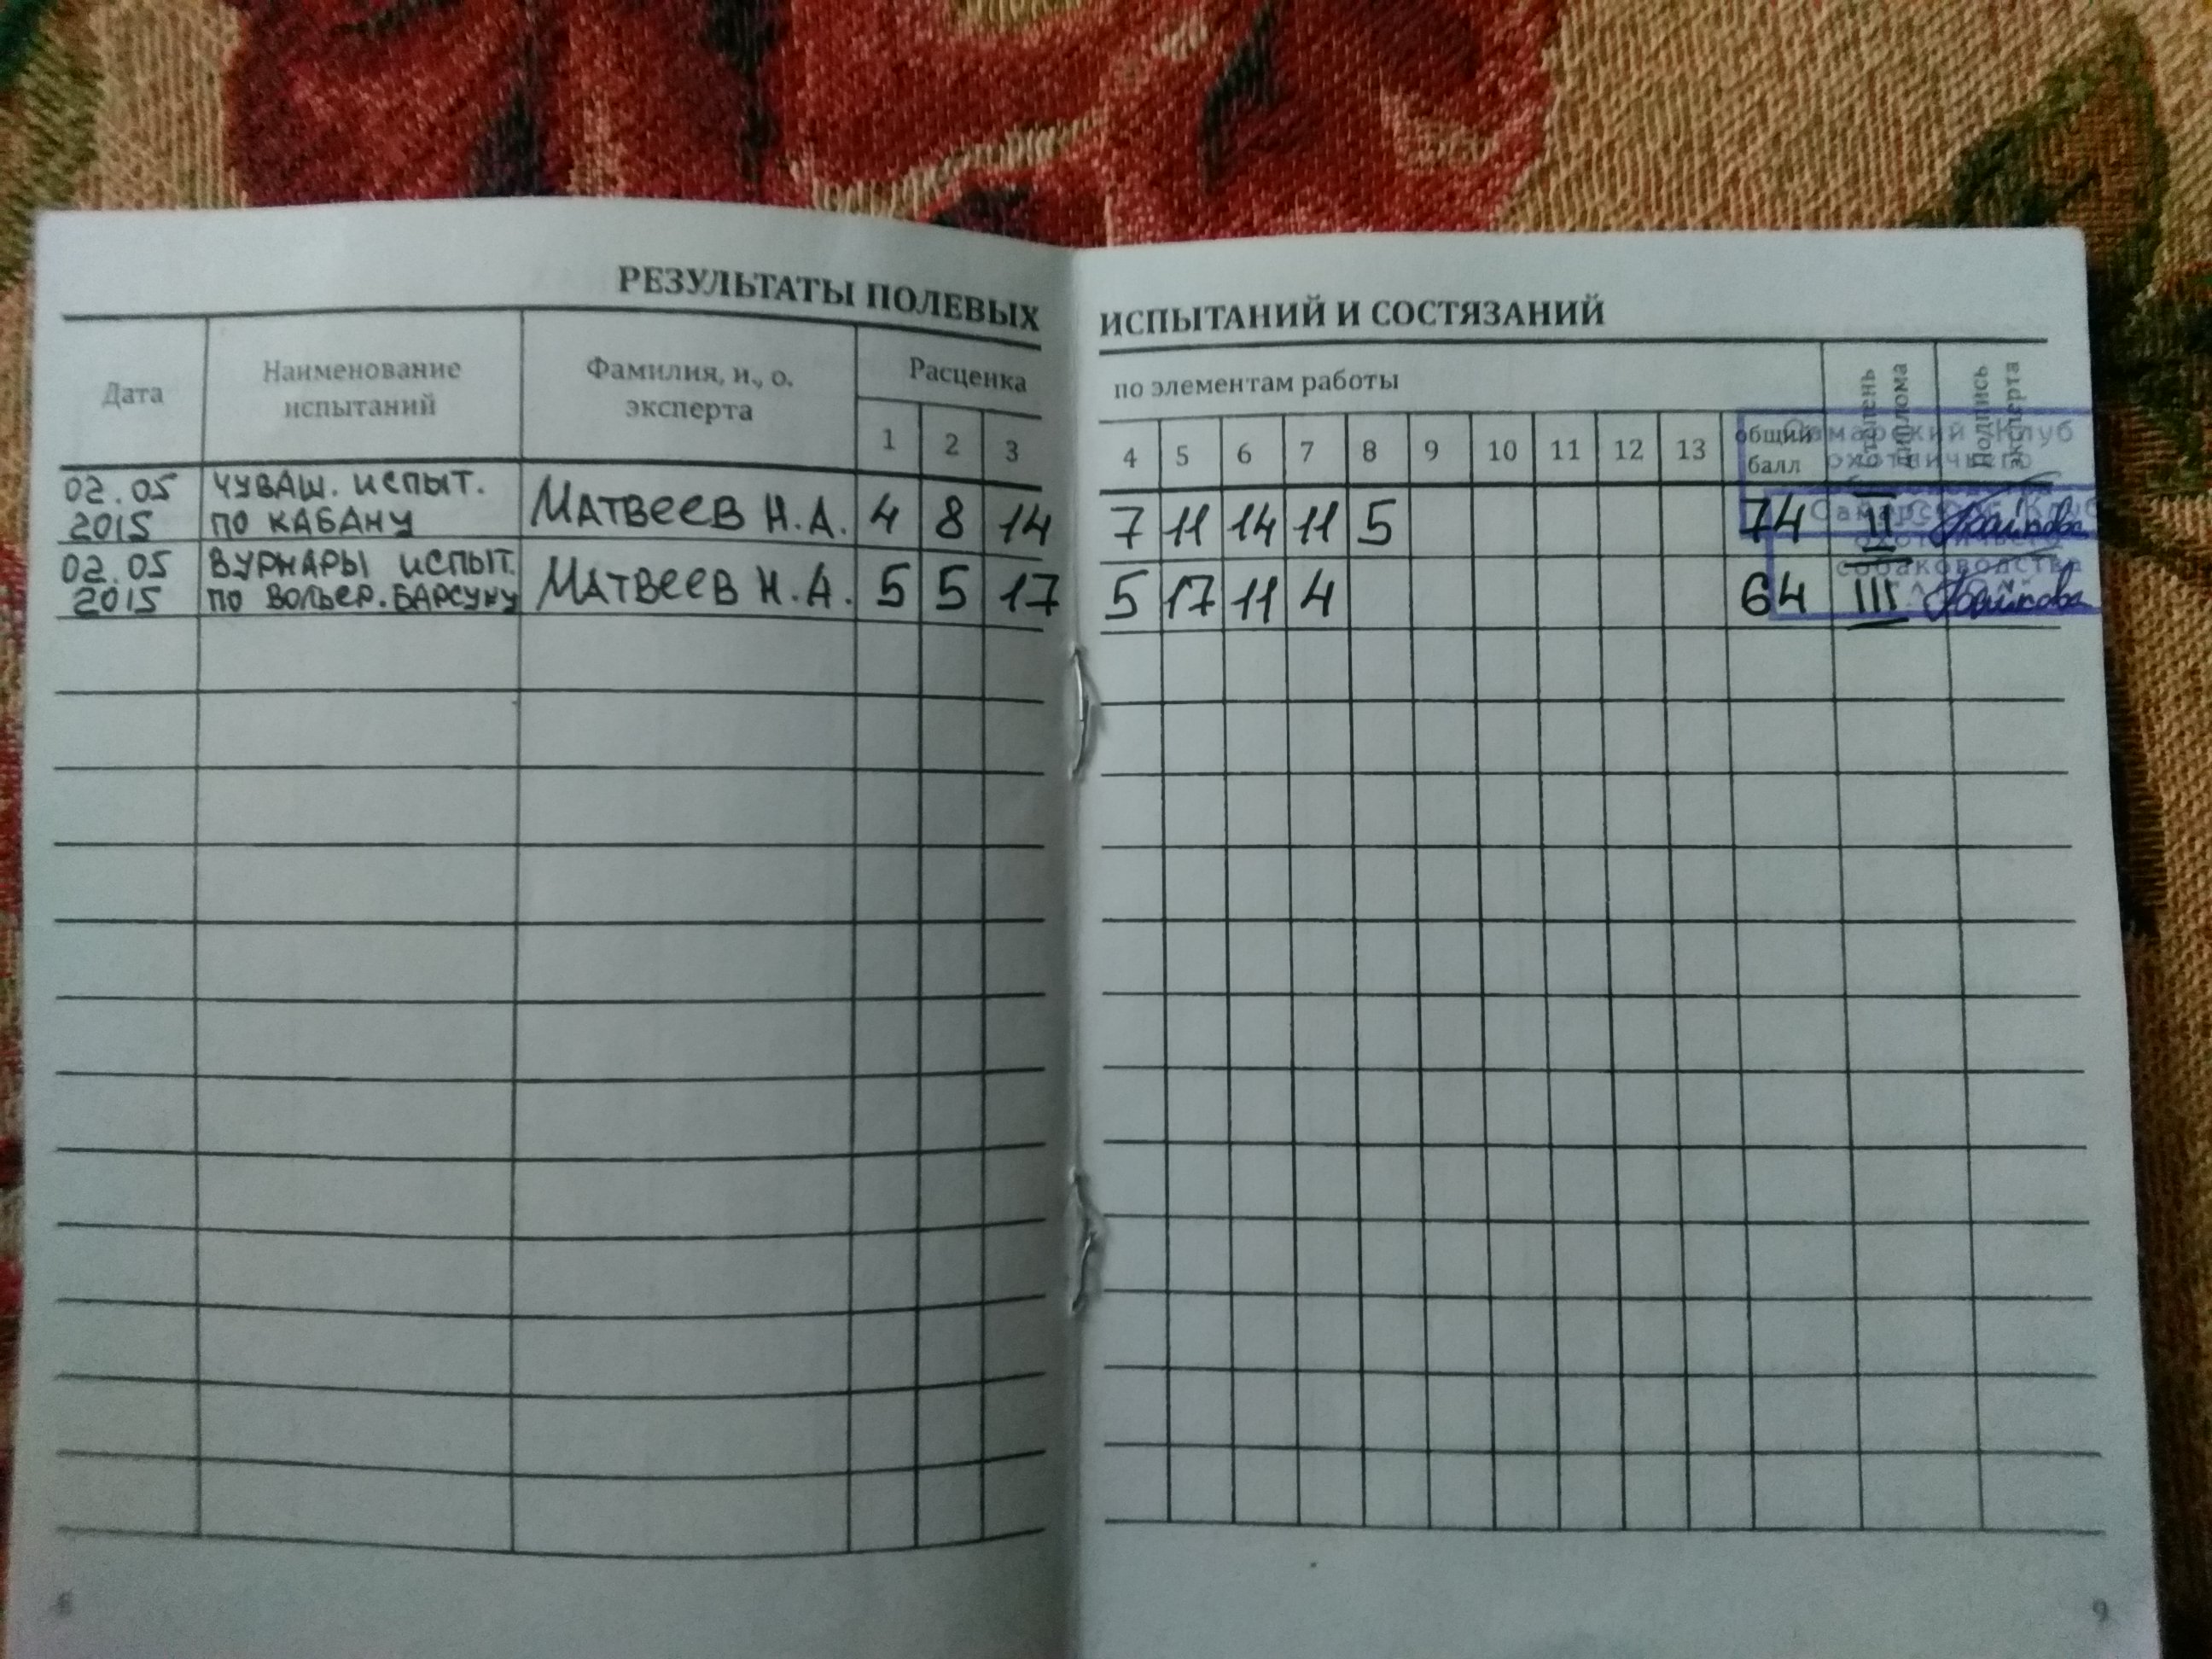 РЕЗУЛЬТАТЫ ПОЛЕВЫХ ИСПЫТАНИЙ И СОСТЯЗАНИЙ
Дата
Наименование
испытаний
Фамилия, и., о.
эксперта
Расценка по элементам работы
1 2 3 4 5 6 7 8 9 10 11 12 13
общий
балл
степень
диплома
подпись
эксперта
Самарский Клуб
охотничьего
02.05
2015
ЧУВАШ. ИСПЫТ.
ПО КАБАНУ
МАТВЕЕВ Н.А. 4 8 14 7 11 14 11 5 74 II
Самарский Клуб
охотничьего
собаководства
02.05
2015
ВУРНАРЫ ИСПЫТ.
ПО ВОЛЬЕР. БАРСУКУ
МАТВЕЕВ Н.А. 5 5 17 5 17 11 4 64 III
9